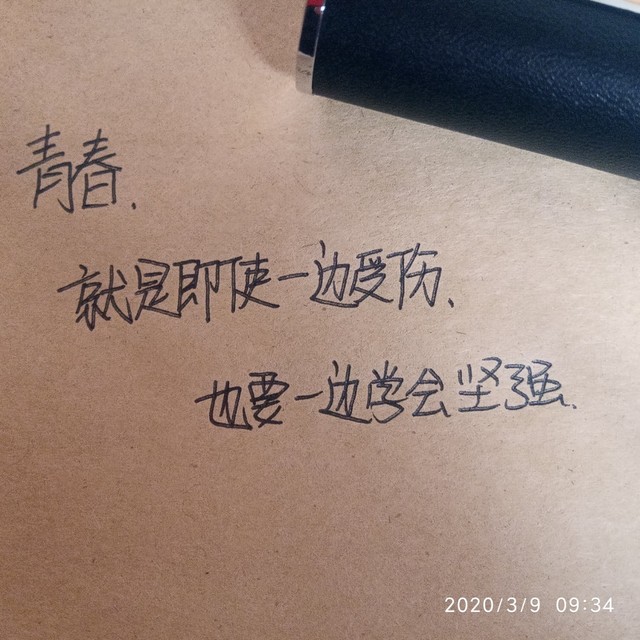 青春.
就是即使一边受伤、
也要一边学会坚强.
2020/3/9 09:34